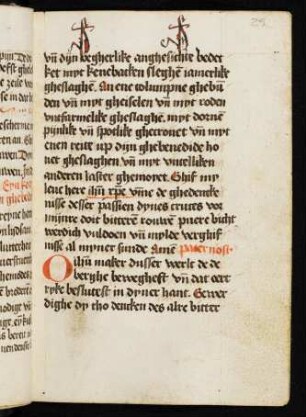 vn̄ dijn begherlike anghesichte bedec
ket myt kenebacken sleghē iamerlike
gheslaghē. An ene columpne ghebū
den vn̄ myt gheiselen vn̄ myt roden
vnfarmelike gheslaghē. myt dornē
pijnlike vn̄ spotlike ghecronet vn̄ myt
enen reite up dijn ghebenedide ho
uet gheslaghen vn̄ myt vntelliken
anderen laster ghemoyet. Ghif my
leue here ih̄u xp̄e vm̄e de ghedencke
nisse desser passien dynes cruces vor
mynre doit bitterē rouwē puere bicht
werdich vuldoen vn̄ mylde verghif
nisse al myner sunde Amē pater nost.
O ih̄u maker dusser werlt de de
berghe bewegheft vn̄ dat eert
ryke beslutest in dyner hant. Gewer
dighe dy tho dencken des alre bitter